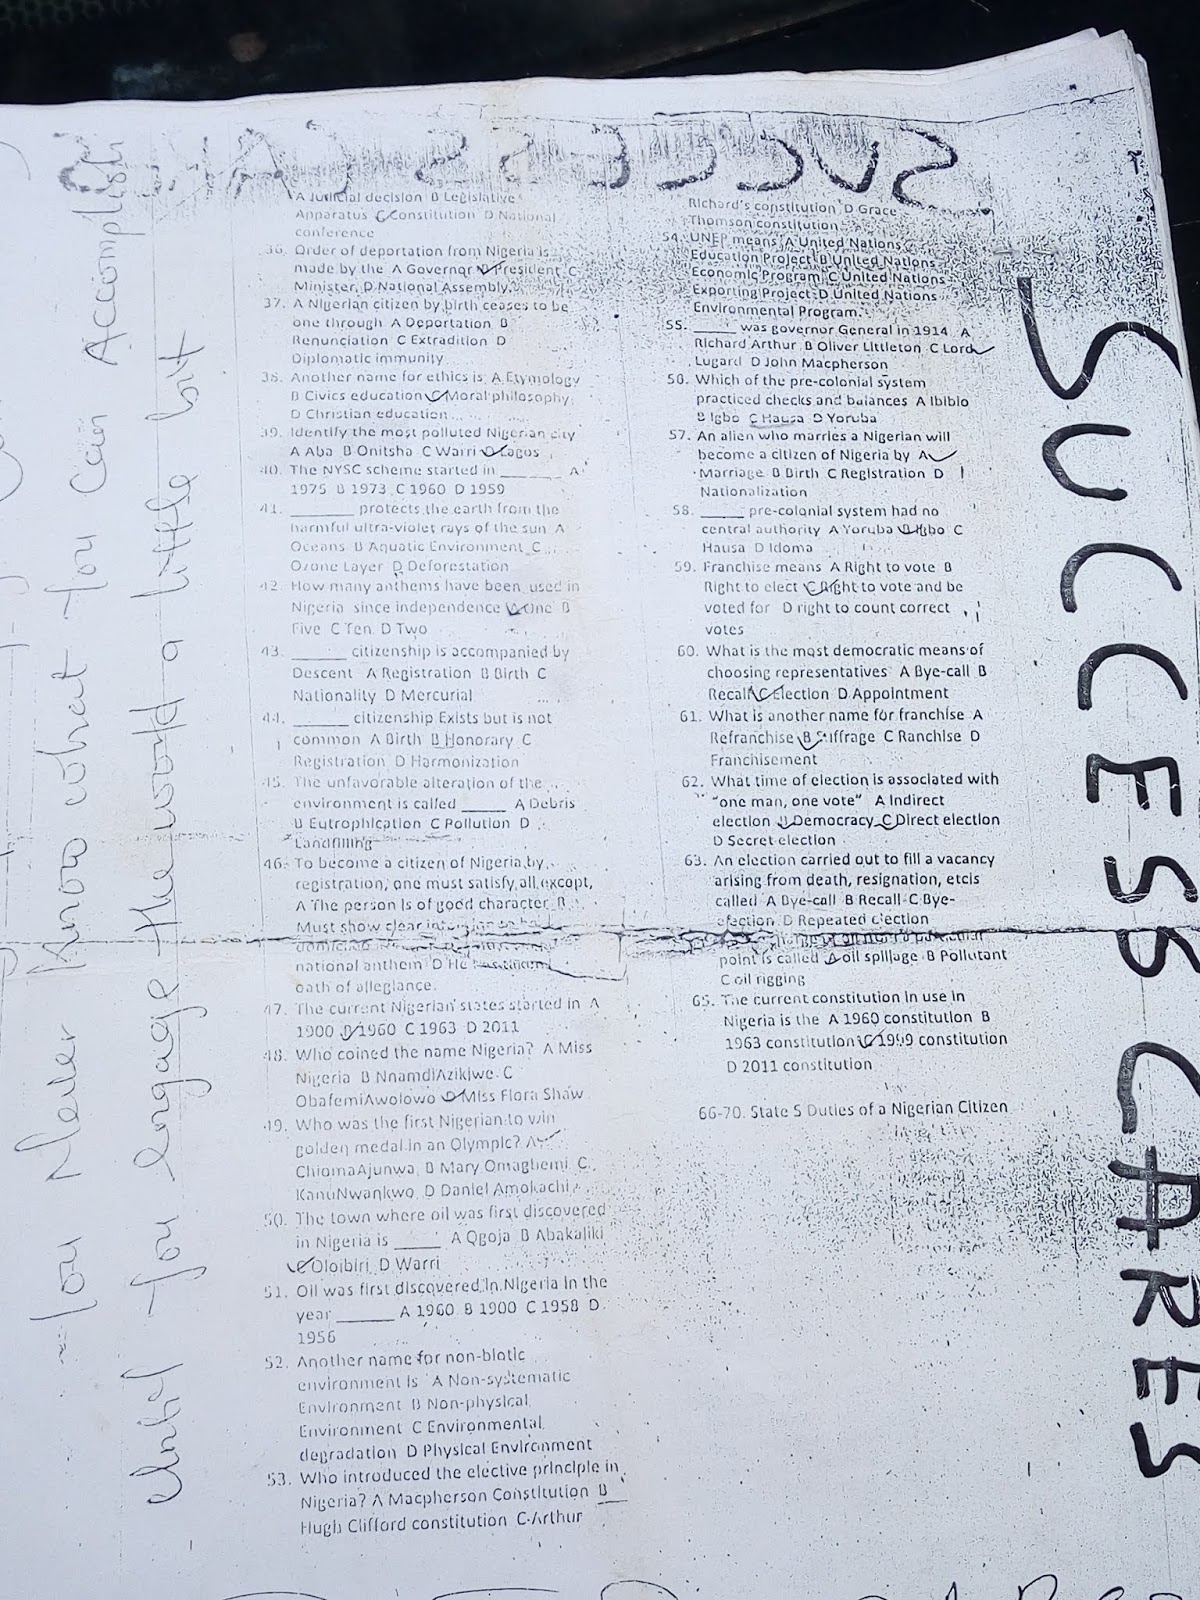 SUCCESS CA
A Judicial decision B Legislative
Apparatus C Constitution D National
conference
36. Order of deportation from Nigeria is
made by the A Governor B President C
Minister, D National Assembly.
37. A Nigerian citizen by birth ceases to be
one through A Deportation B
Renunciation C Extradition D
Diplomatic immunity
38. Another name for ethics is A Etymology
B Civics education C Moral philosophy
D Christian education
39. Identify the most polluted Nigerian city
A Aba B Onitsha C Warri D Lagos
40. The NYSC scheme started in ______ A
1975 B 1973 C 1960 D 1959
41. ______ protects the earth from the
harmful ultra-violet rays of the sun A
Oceans B Aquatic Environment C
Ozone Layer D Deforestation
42. How many anthems have been used in
Nigeria since independence A One B
Five C Ten D Two
43. ______ citizenship is accompanied by
Descent A Registration B Birth C
Nationality D Mercurial
44. ______ citizenship Exists but is not
common A Birth B Honorary C
Registration D Harmonization
45. The unfavorable alteration of the
environment is called _____ A Debris
B Eutrophication C Pollution D
Landfilling
46. To become a citizen of Nigeria by
registration, one must satisfy all except,
A The person is of good character B
Must show clear
national anthem D He
oath of allegiance.
47. The current Nigerian states started in A
1900 B 1960 C 1963 D 2011
48. Who coined the name Nigeria? A Miss
Nigeria B NnamdiAzikiwe C
ObafemiAwolowo D Miss Flora Shaw
49. Who was the first Nigerian to win
golden medal in an Olympic? A
ChiomaAjunwa B Mary Omagbemi C
KanuNwankwo D Daniel Amokachi
50. The town where oil was first discovered
in Nigeria is _____ A Ogoja B Abakaliki
C Oloibiri D Warri
51. Oil was first discovered in Nigeria in the
year ______ A 1960 B 1900 C 1958 D
1956
52. Another name for non-biotic
environment is A Non-systematic
Environment B Non-physical
Environment C Environmental
degradation D Physical Environment
53. Who introduced the elective principle in
Nigeria? A Macpherson Constitution B
Hugh Clifford constitution C Arthur
Richard's constitution D Grace
Thomson constitution
54. UNEP means A United Nations
Education Project B United Nations
Economic Program C United Nations
Exporting Project D United Nations
Environmental Program.
55. _____ was governor General in 1914 A
Richard Arthur B Oliver Littleton C Lord
Lugard D John Macpherson
56. Which of the pre-colonial system
practiced checks and balances A Ibibio
B Igbo C Hausa D Yoruba
57. An alien who marries a Nigerian will
become a citizen of Nigeria by A
Marriage B Birth C Registration D
Nationalization
58. _____ pre-colonial system had no
central authority A Yoruba B Igbo C
Hausa D Idoma
59. Franchise means A Right to vote B
Right to elect C Right to vote and be
voted for D right to count correct
votes
60. What is the most democratic means of
choosing representatives A Bye-call B
Recall C Election D Appointment
61. What is another name for franchise A
Refranchise B Suffrage C Ranchise D
Franchisement
62. What time of election is associated with
"one man, one vote" A Indirect
election B Democracy C Direct election
D Secret election
63. An election carried out to fill a vacancy
arising from death, resignation, etcis
called A Bye-call B Recall C Bye-
election D Repeated election
point is called A oil spillage B Pollutant
C oil rigging
65. The current constitution in use in
Nigeria is the A 1960 constitution B
1963 constitution C 1999 constitution
D 2011 constitution
66-70. State 5 Duties of a Nigerian Citizen
SUCCESS CARES
You Never Know what You Can Accomplish
Until You engage the world a little bit